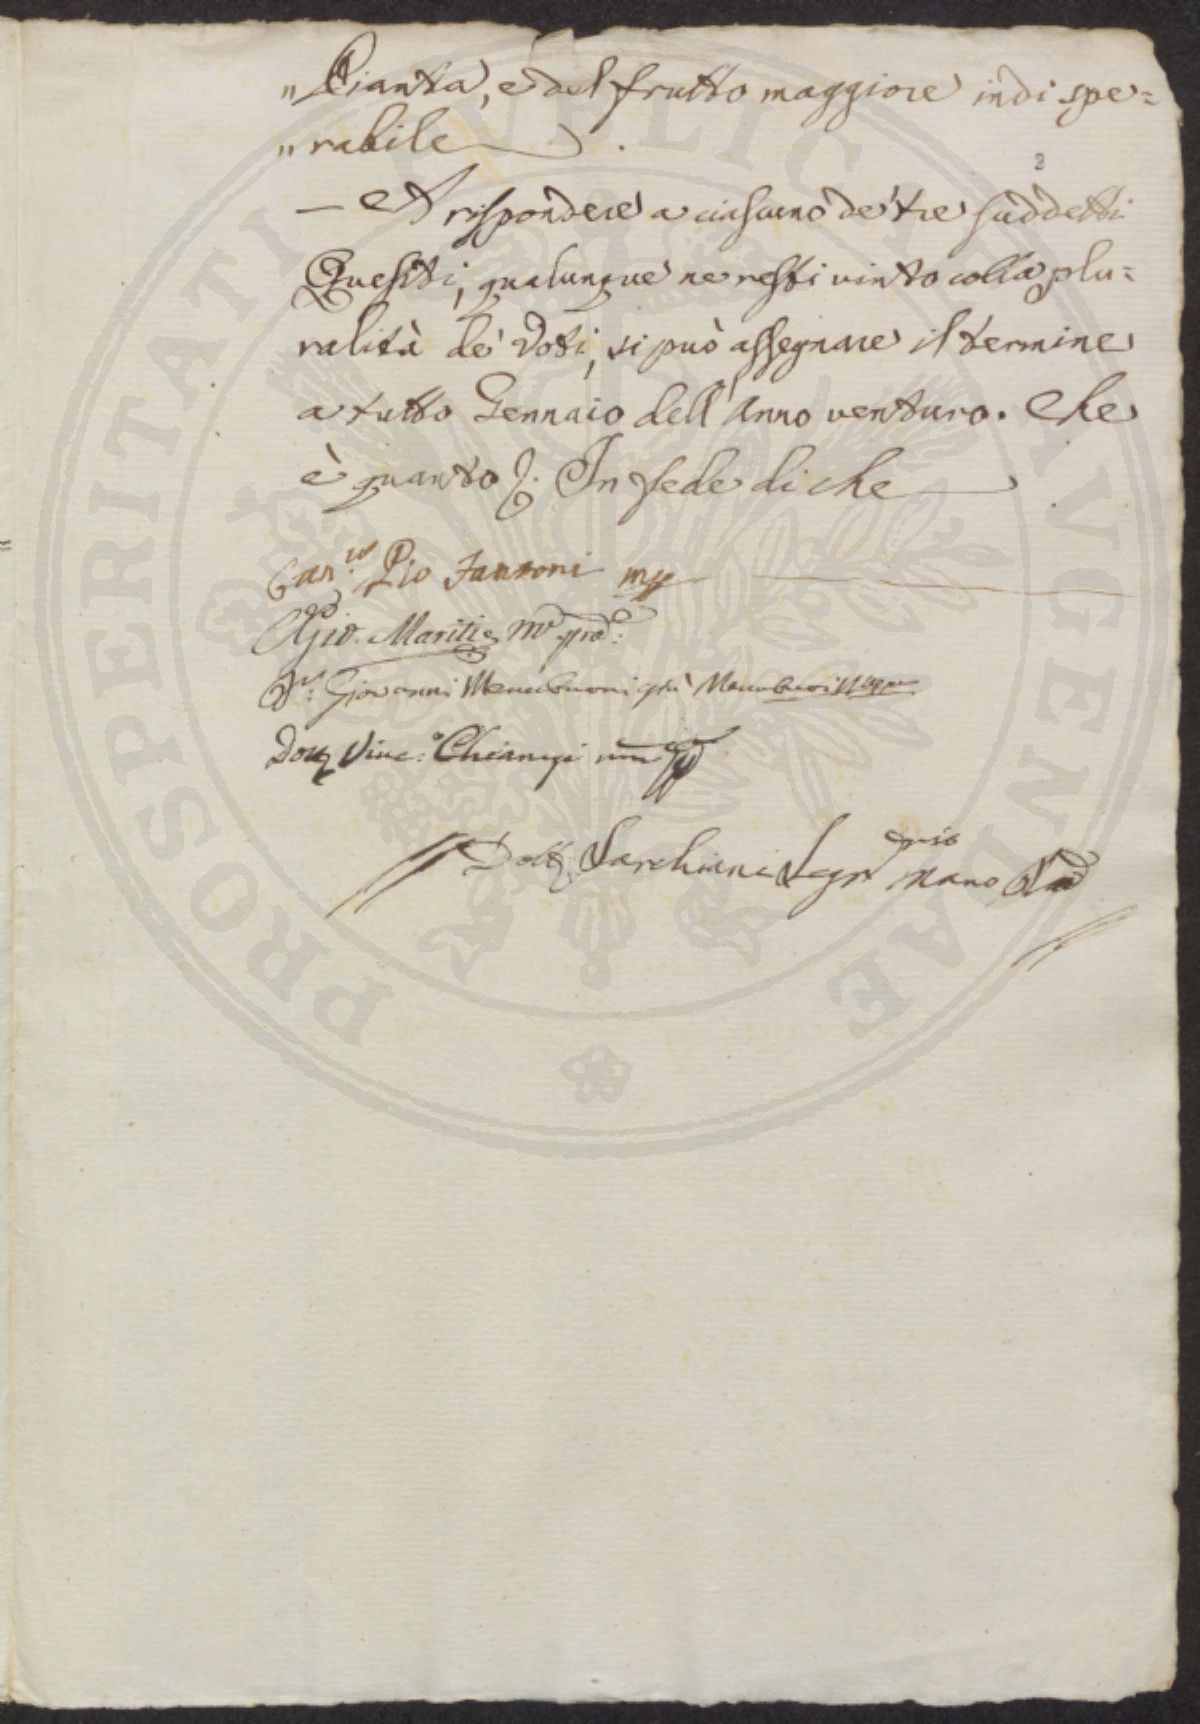 „ Pianta, e del frutto maggiore indi spe=
„ rabile.
— A rispondere a ciascuno de' tre suddetti
Quesiti, qualunque ne resti vinto colla plu=
ralità de' Voti, si può assegnare il termine
a tutto Gennaio dell' Anno venturo. Che
è quanto &. In fede di che
Can.co Pio Fantoni mpp
Gio. Mariti mo. pra.
Dr. Giovanni Menabuoni già Menabuoi
Dott. Vinc.o Chiarugi
Dott. Sarchiani Segr.rio mano pa
PROSPERITATI PUBLICAE AUGENDAE